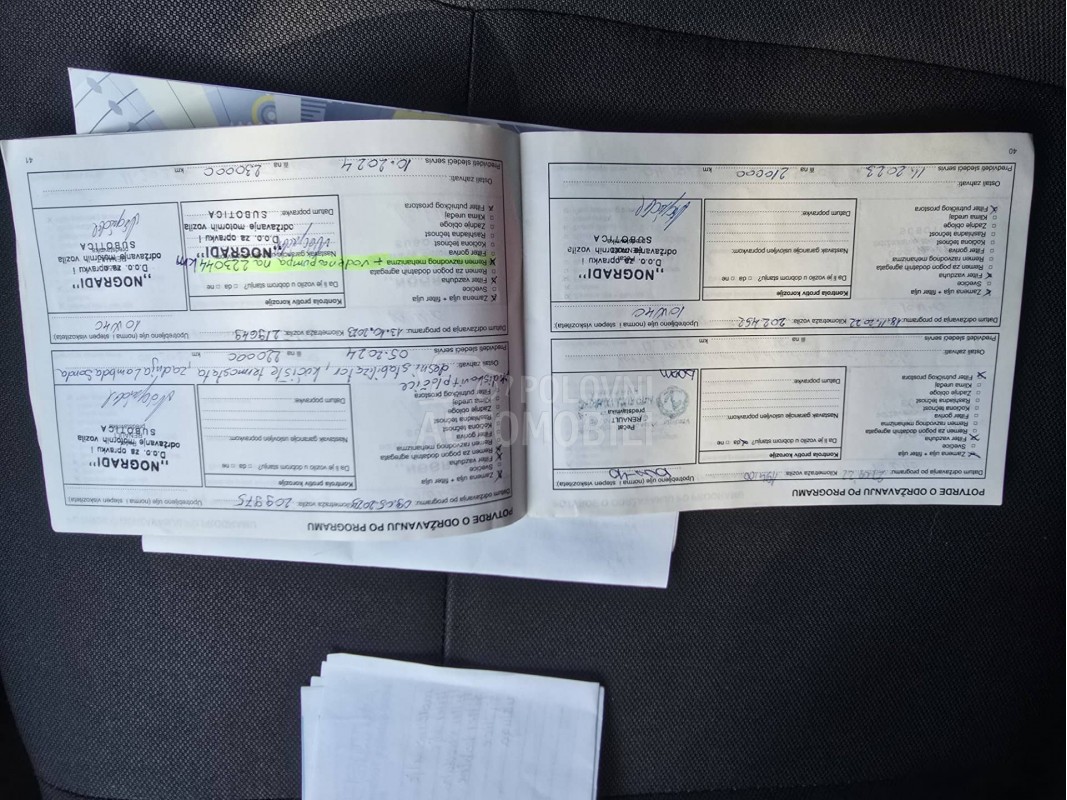 40
POTVRDE O ODRŽAVANJU PO PROGRAMU
Datum održavanja po programu:
Kilometraža vozila:
Upotrebljeno ulje (norma i stepen viskoziteta)
Zamena ulja + filter ulja
Svećice
Filter vazduha
Remen za pogon dodatnih agregata
Remen razvodnog mehanizma
Filter goriva
Kočiona tečnost
Rashladna tečnost
Zadnje obloge
Klima uređaj
Filter putničkog prostora
Kontrola protiv korozije
Da li je vozilo u dobrom stanju? da ne
Nastavak garancije uslovljen popravkom:
Datum popravke:
Pečat
RENAULT
predstavnika
Ostali zahvati:
Predvideti sledeći servis
ili na
km
Datum održavanja po programu: 18.11.2022 Kilometraža vozila: 202452
Upotrebljeno ulje (norma i stepen viskoziteta)
10W40
Zamena ulja + filter ulja
Svećice
Filter vazduha
Remen za pogon dodatnih agregata
Remen razvodnog mehanizma
Filter goriva
Kočiona tečnost
Rashladna tečnost
Zadnje obloge
Klima uređaj
Filter putničkog prostora
Kontrola protiv korozije
Da li je vozilo u dobrom stanju? da ne
Nastavak garancije uslovljen popravkom:
Datum popravke:
"NOGRADI"
D.o.o. za opravku i
održavanje motornih vozila
SUBOTICA
Ostali zahvati:
Predvideti sledeći servis 11.2023 ili na 210000 km
41
POTVRDE O ODRŽAVANJU PO PROGRAMU
Datum održavanja po programu: 09.05.2023 Kilometraža vozila: 209975
Upotrebljeno ulje (norma i stepen viskoziteta)
Zamena ulja + filter ulja
Svećice
Filter vazduha
Remen za pogon dodatnih agregata
Remen razvodnog mehanizma
Filter goriva
Kočiona tečnost
Rashladna tečnost
Zadnje obloge
Klima uređaj
Filter putničkog prostora
Kontrola protiv korozije
Da li je vozilo u dobrom stanju? da ne
Nastavak garancije uslovljen popravkom:
Datum popravke:
"NOGRADI"
D.o.o. za opravku i
održavanje motornih vozila
SUBOTICA
diskovi + pločice
Ostali zahvati: desni stabilizator, kućište termostata, zadnja Lambda Sonda
Predvideti sledeći servis 05.2024 ili na 220000 km
Datum održavanja po programu: 13.10.2023 Kilometraža vozila: 219649
Upotrebljeno ulje (norma i stepen viskoziteta)
10W40
Zamena ulja + filter ulja
Svećice
Filter vazduha
Remen za pogon dodatnih agregata
Remen razvodnog mehanizma + vodena pumpa na 225044 km
Filter goriva
Kočiona tečnost
Rashladna tečnost
Zadnje obloge
Klima uređaj
Filter putničkog prostora
Kontrola protiv korozije
Da li je vozilo u dobrom stanju? da ne
Nastavak garancije
"NOGRADI"
D.o.o. za opravku i
održavanje motornih vozila
SUBOTICA
Datum popravke:
"NOGRADI"
D.o.o. za opravku i
održavanje motornih vozila
SUBOTICA
Ostali zahvati:
Predvideti sledeći servis 10.2024 ili na 230000 km
POLOVNI
AUTOMOBILI